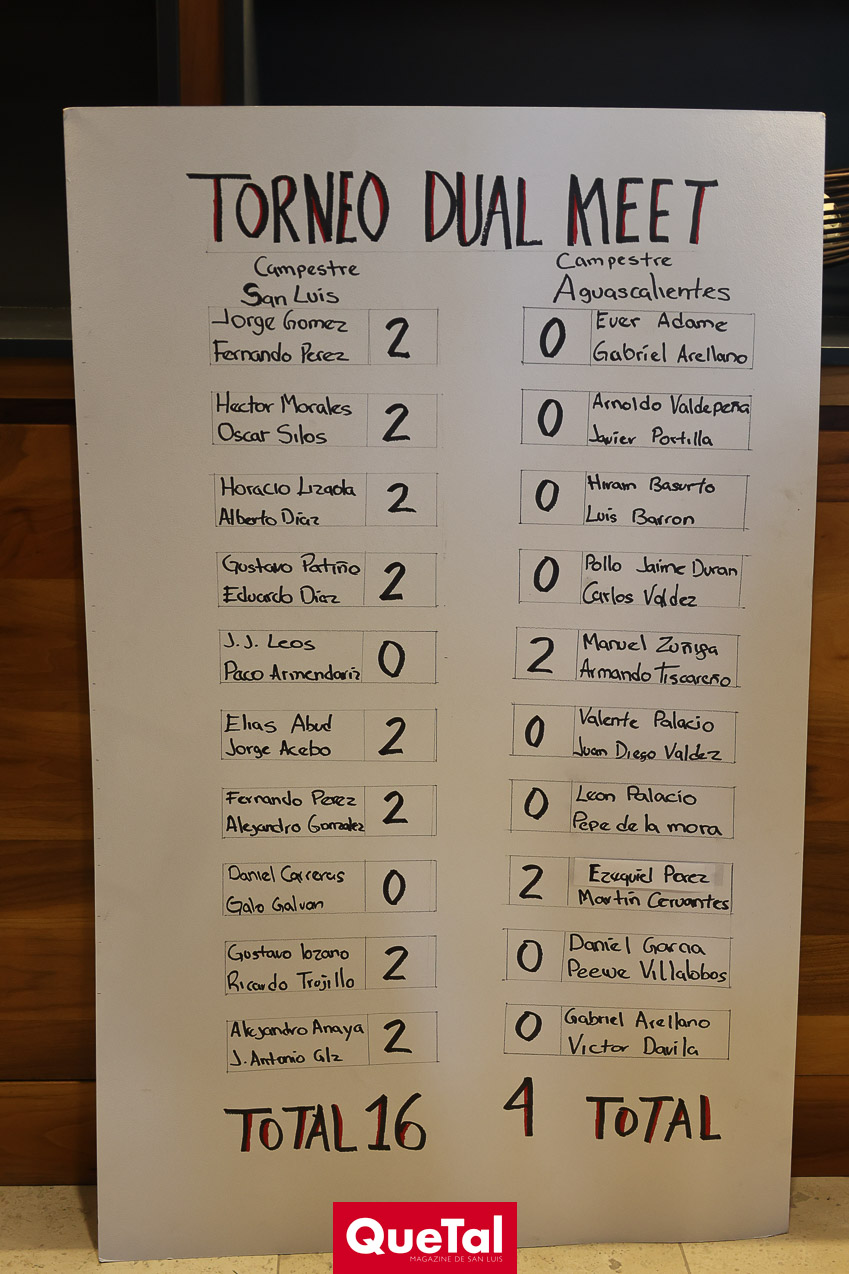 TORNEO DUAL MEET
Campestre
San Luis
Campestre
Aguascalientes
Jorge Gomez
Fernando Perez
2
0
Ever Adame
Gabriel Arellano
Hector Morales
Oscar Silos
2
0
Arnoldo Valdepeña
Javier Portilla
Horacio Lizaola
Alberto Díaz
2
0
Hiram Basurto
Luis Barron
Gustavo Patiño
Eduardo Díaz
2
0
Pollo Jaime Duran
Carlos Valdez
J.J. Leos
Paco Armendariz
0
2
Manuel Zuñiga
Armando Tiscareño
Elias Abud
Jorge Acebo
2
0
Valente Palacio
Juan Diego Valdez
Fernando Perez
Alejandro Gonzalez
2
0
Leon Palacio
Pepe de la mora
Daniel Carreras
Galo Galvan
0
2
Ezequiel Perez
Martín Cervantes
Gustavo lozano
Ricardo Trojillo
2
0
Daniel Garcia
Peewe Villalobos
Alejandro Anaya
J. Antonio Glz
2
0
Gabriel Arellano
Victor Davila
TOTAL 16
4 TOTAL
QueTal
MAGAZINE DE SAN LUIS